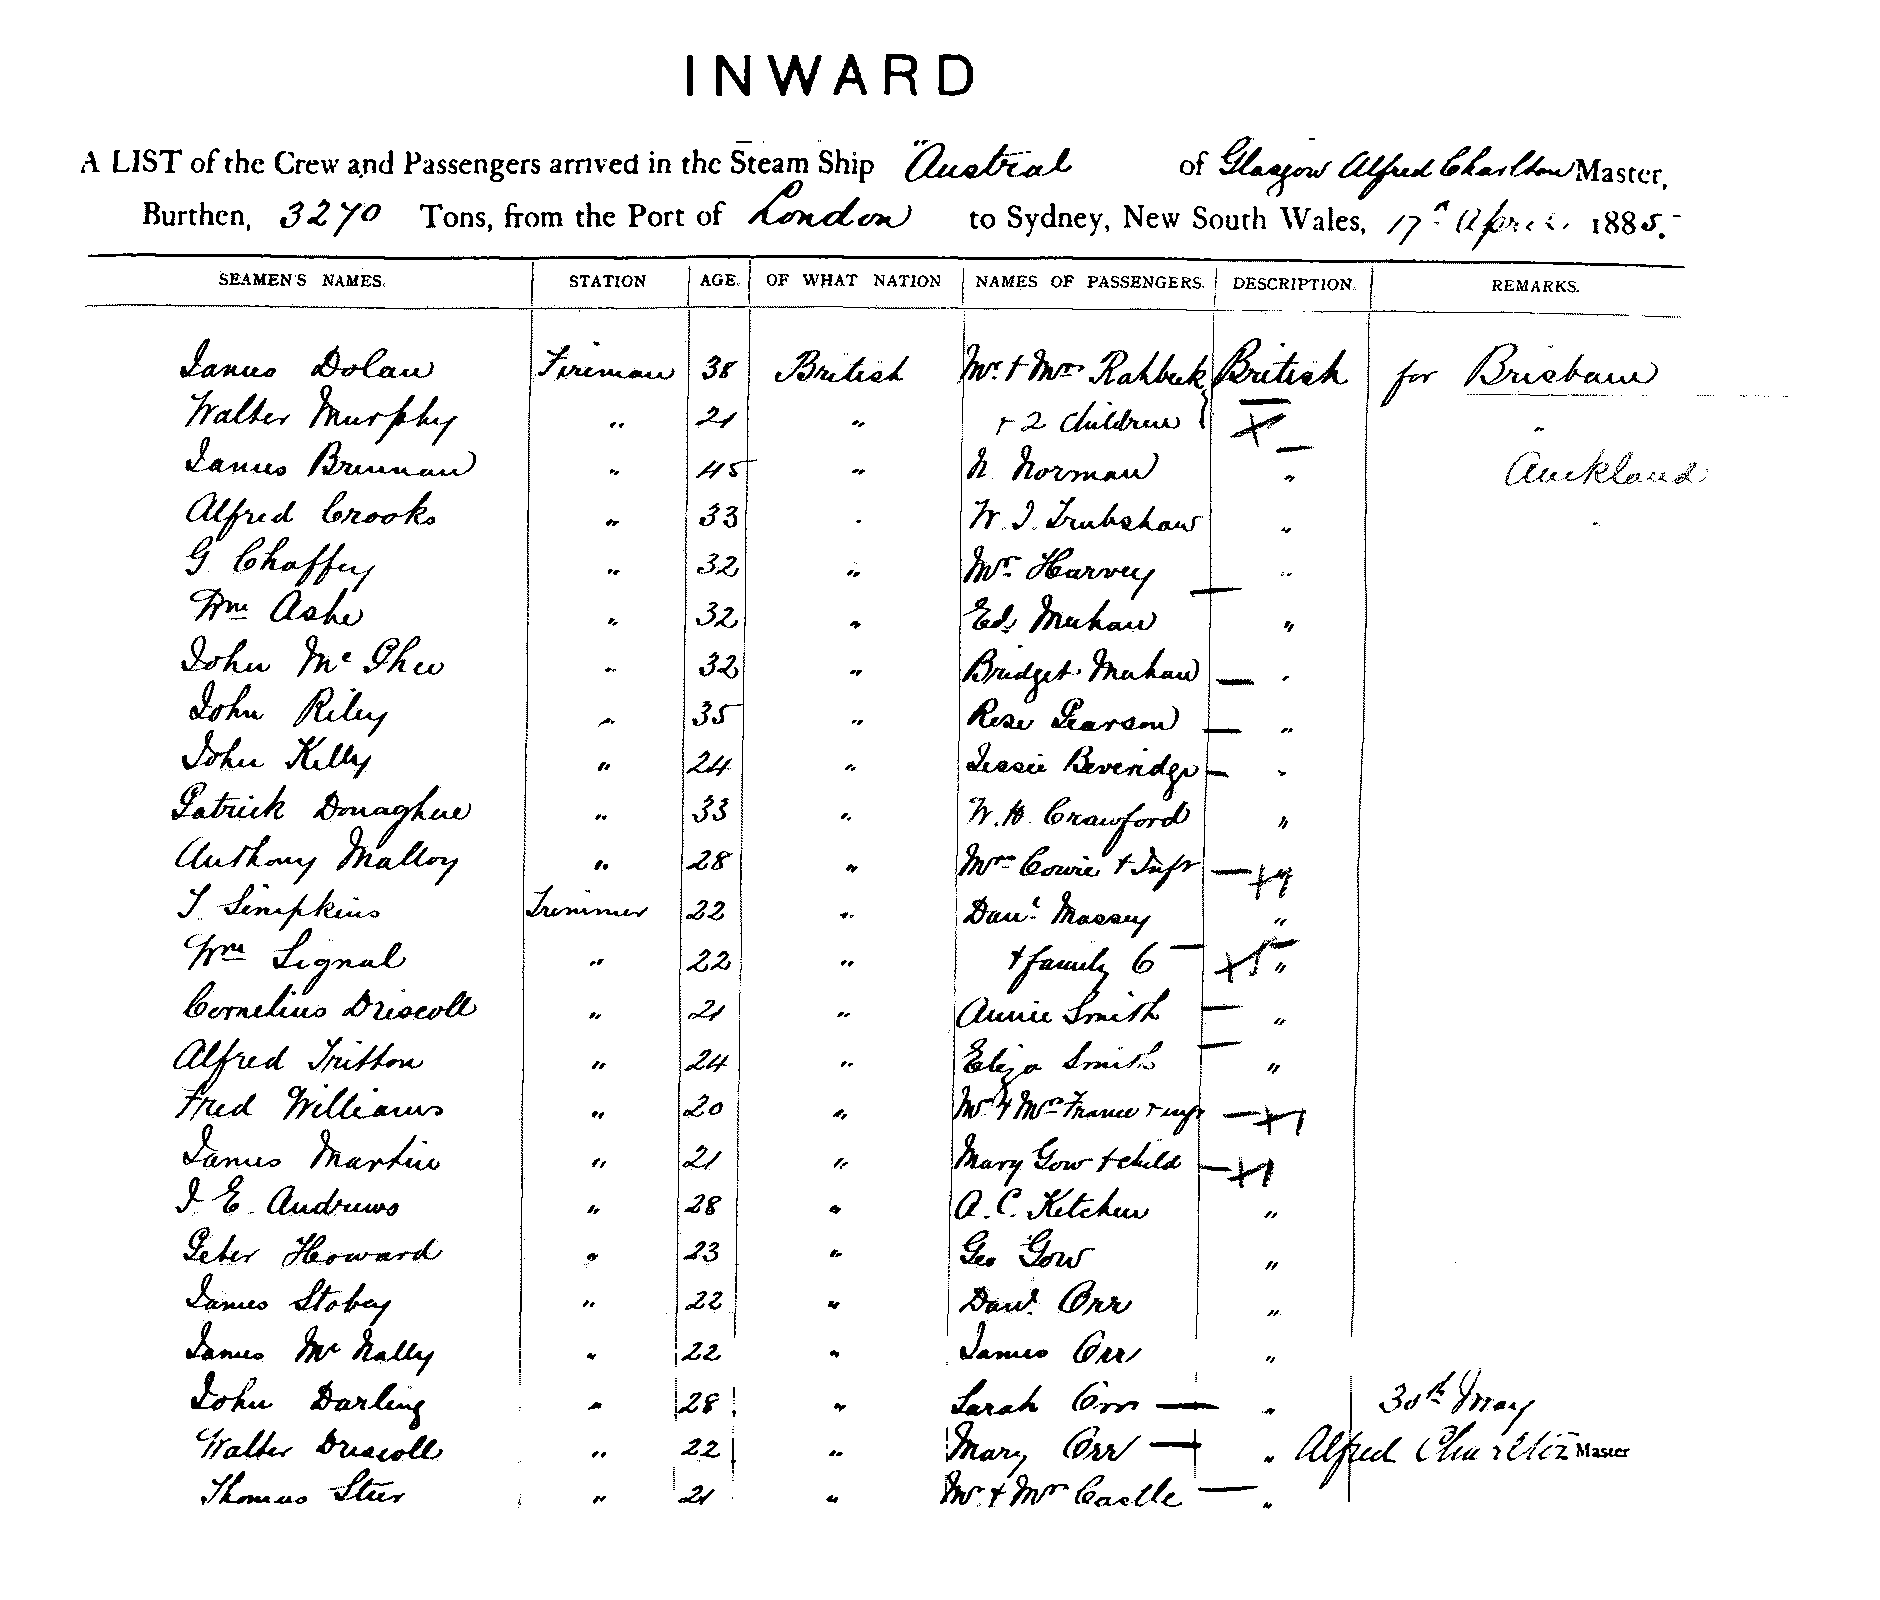 INWARD
A LIST of the Crew and Passengers arrived in the Steam Ship "Austral of Glasgow Alfred Charlton Master,
Burthen, 3270 Tons, from the Port of London to Sydney, New South Wales, 17th April 1885.
SEAMEN'S NAMES. STATION AGE. OF WHAT NATION NAMES OF PASSENGERS. DESCRIPTION. REMARKS.
James Dolan Fireman 38 British Mr. + Mrs Rahbeck British for Brisbane
Walter Murphy " 21 " + 2 Children "
James Brennan " 45 " N. Norman " Auckland
Alfred Crooks " 33 " W. J. Trubshaw "
G Chaffey " 32 " Mr. Harvey "
Wm Ashe " 32 " Ed. Meehan "
John McPhee " 32 " Bridget Meehan — "
John Riley " 35 " Rose Pearson — "
John Kelly " 24 " Jessie Beveridge — "
Patrick Donaghue " 33 " W. H. Crawford "
Anthony Malloy " 28 " Mrs Cowie + Inft — "
J. Simpkins Trimmer 22 " Danl. Massey "
Wm Signal " 22 " + family 6 — "
Cornelius Driscoll " 21 " Annie Smith — "
Alfred Tritton " 24 " Eliza Smith — "
Fred Williams " 20 " Mr. + Mrs France + inft — +1
James Martin " 21 " Mary Gow + child — +1
J. E. Andrews " 28 " A. C. Ketchen "
Peter Howard " 23 " Geo Gow "
James Stobey " 22 " Davd. Orr "
James McNally " 22 " James Orr "
John Darling " 28 " Sarah Orr — " 30th May
Walter Driscoll " 22 " Mary Orr — " Alfred Charlton Master
Thomas Steer " 21 " Mr. + Mrs Castle — "